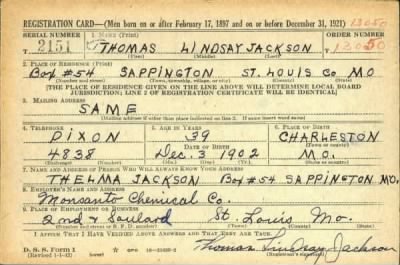 REGISTRATION CARD—(Men born on or after February 17, 1897 and on or before December 31, 1921) 13050
SERIAL NUMBER 1. NAME (Print) ORDER NUMBER
2151 THOMAS LINDSAY JACKSON 13050
(First) (Middle) (Last)
2. PLACE OF RESIDENCE (Print)
Box #54 SAPPINGTON ST. LOUIS Co MO
(Number and street) (Town, township, village, or city) (County) (State)
[THE PLACE OF RESIDENCE GIVEN ON THE LINE ABOVE WILL DETERMINE LOCAL BOARD
JURISDICTION; LINE 2 OF REGISTRATION CERTIFICATE WILL BE IDENTICAL]
3. MAILING ADDRESS
SAME
[Mailing address if other than place indicated on line 2. If same insert word same]
4. TELEPHONE 5. AGE IN YEARS 6. PLACE OF BIRTH
DIXON 39 CHARLESTON
DATE OF BIRTH (Town or county)
4838 DEC. 3 1902 MO.
(Exchange) (Number) (Mo.) (Day) (Yr.) (State or country)
7. NAME AND ADDRESS OF PERSON WHO WILL ALWAYS KNOW YOUR ADDRESS
THELMA JACKSON Box #54 SAPPINGTON MO.
8. EMPLOYER'S NAME AND ADDRESS
Monsanto Chemical Co.
9. PLACE OF EMPLOYMENT OR BUSINESS
2nd & Soulard St. Louis Mo.
(Number and street or R. F. D. number) (Town) (County) (State)
I AFFIRM THAT I HAVE VERIFIED ABOVE ANSWERS AND THAT THEY ARE TRUE.
D. S. S. Form 1
(Revised 1-1-42) (over) Thomas Lindsay Jackson
(Registrant's signature)